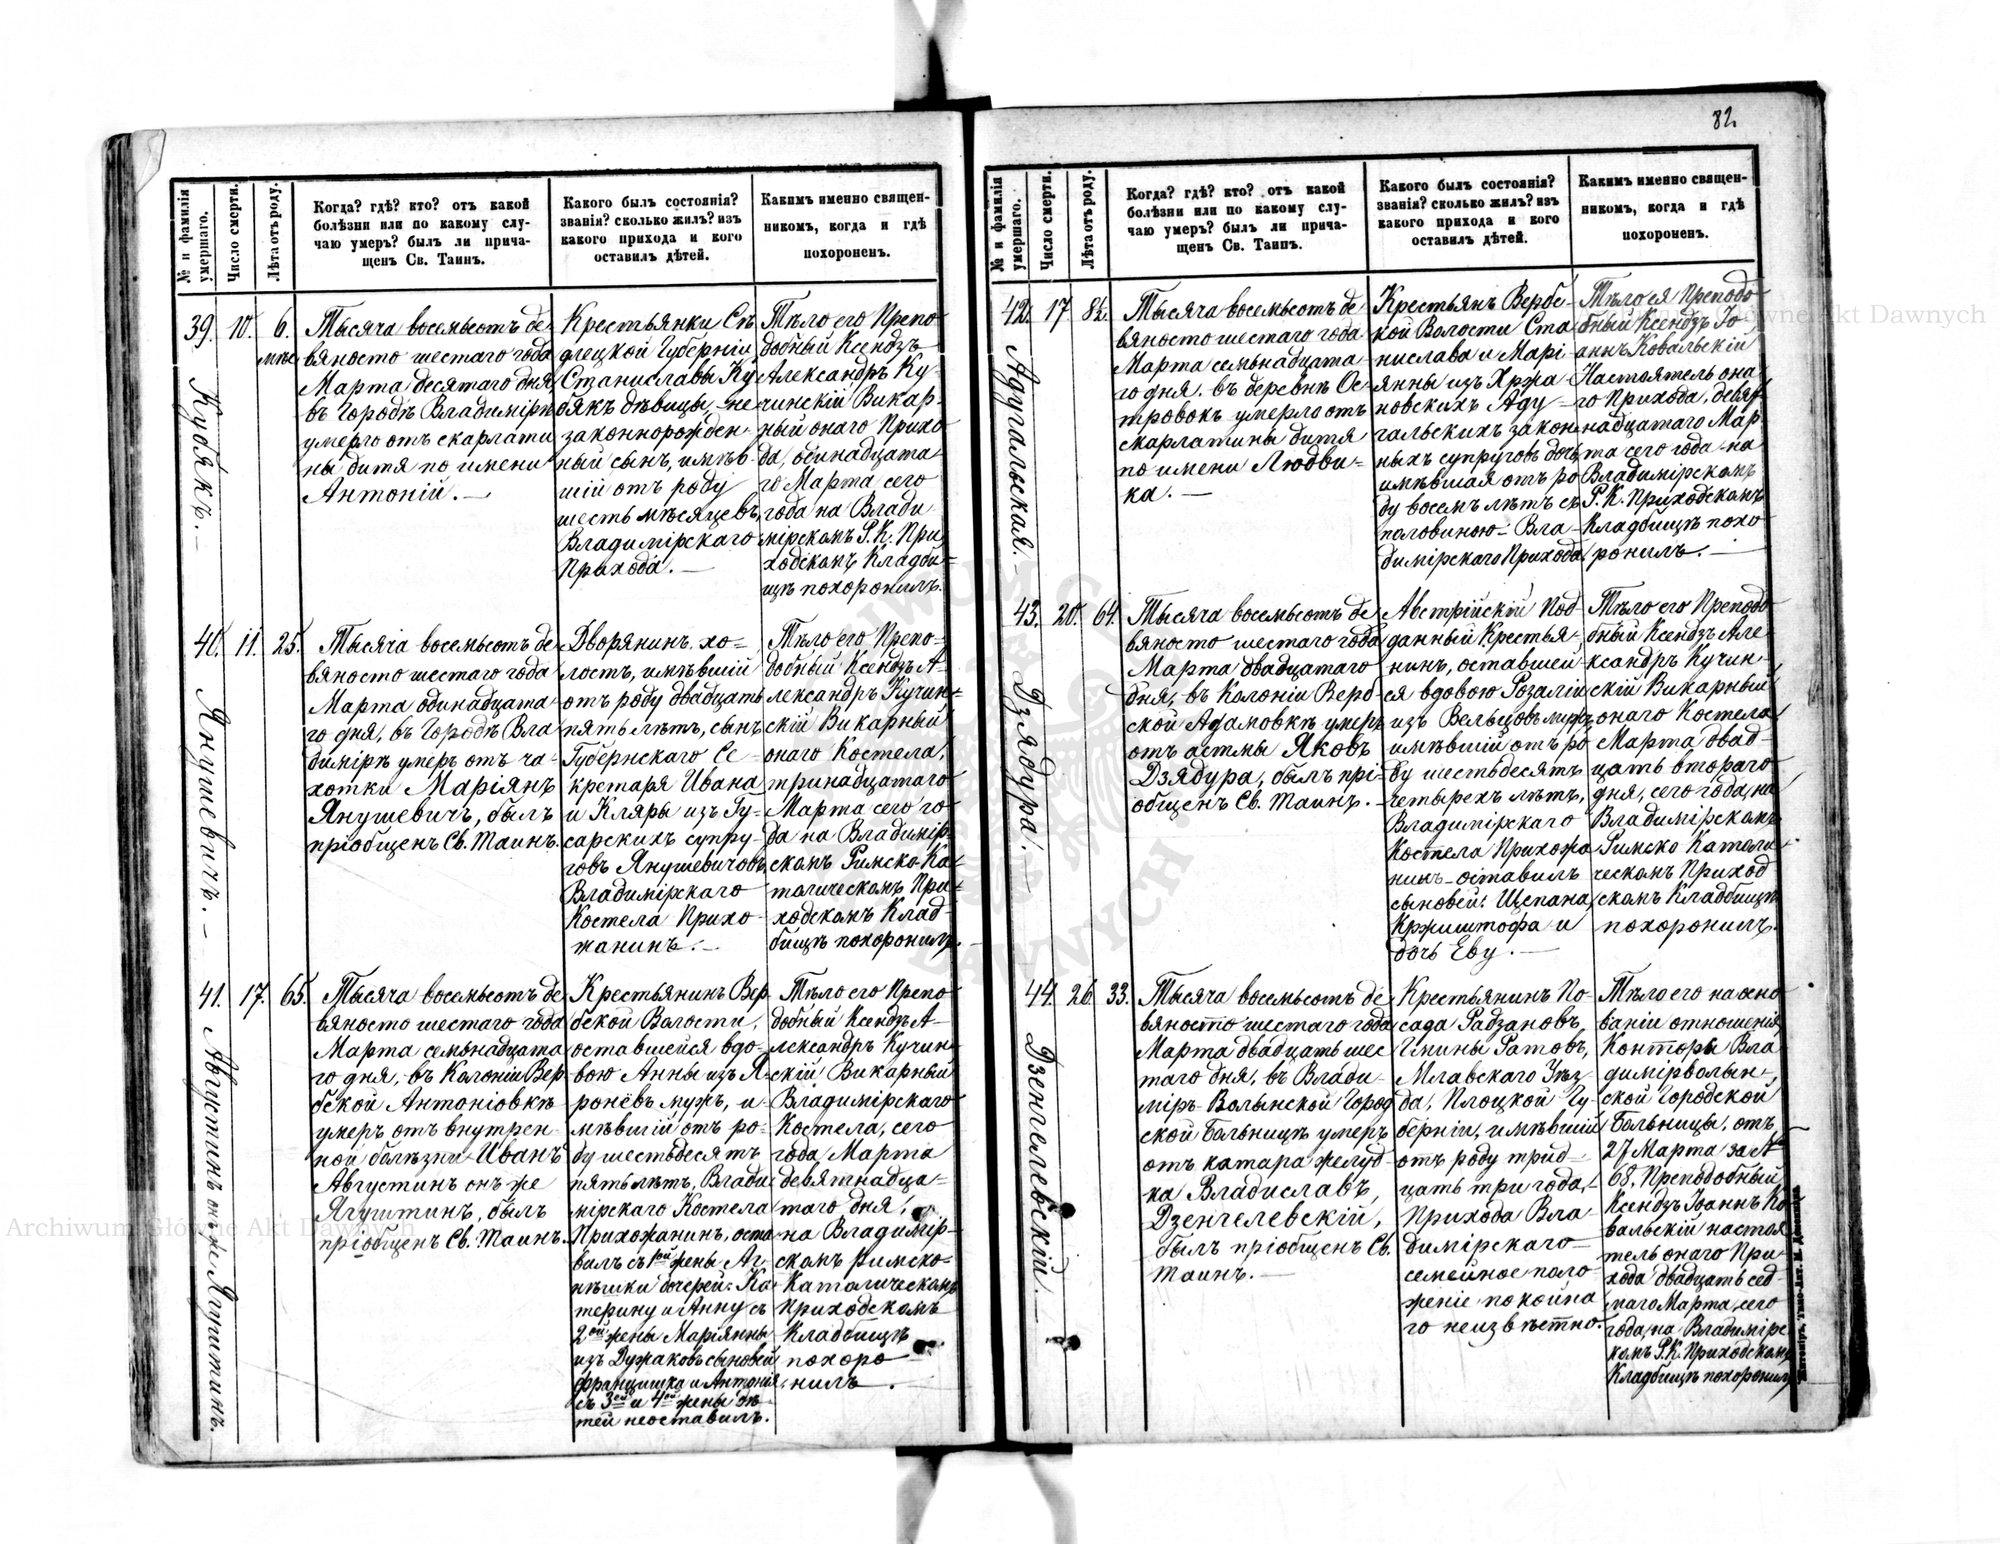 82.
№ и фамилія умершаго.
Число смерти.
Лѣта отъ роду.
Когда? гдѣ? кто? отъ какой
болѣзни или по какому слу-
чаю умеръ? былъ ли прича-
щенъ Св. Таинъ.
Какого былъ состоянія?
званія? сколько жилъ? изъ
какого прихода и кого
оставилъ дѣтей.
Какимъ именно священ-
никомъ, когда и гдѣ
похороненъ.
39.
Кубякъ. —
10.
6.
мѣс
Тысяча восемьсотъ де
вяносто шестаго года
Марта десятаго дня
въ Городѣ Владимірѣ
умерло отъ скарлати
ны дитя по имени
Антоній. —
Крестьянки Сѣ
длецкой Губерніи
Станиславы Ку
бякъ дѣвицы, не
законнорожден-
ный сынъ, имѣв-
шій отъ роду
шесть мѣсяцевъ,
Владимірскаго
Прихода. —
Тѣло его Препо
добный Ксендзъ
Александръ Ку-
чинскій Викар-
ный онаго Прихо
да, одинадцата
го Марта сего
года на Влади
мірскомъ Р. К. При
ходскомъ Кладби-
щѣ похоронилъ.
40.
Янушевичъ. —
11.
25.
Тысяча восемьсотъ де
вяносто шестаго года
Марта одинадцата-
го дня, въ Городѣ Вла
димірѣ умеръ отъ ча-
хотки Маріянъ
Янушевичъ, былъ
пріобщенъ Св. Таинъ.
Дворянинъ хо=
лостъ, имѣвшій
отъ роду двадцать
пять лѣтъ, сынъ
Губернскаго Се-
кретаря Ивана
и Кляры изъ Гу-
сарскихъ супру-
говъ Янушевичовъ,
Владимірскаго
Костела Прихо-
жанинъ. —
Тѣло его Препо-
добный Ксендзъ А-
лександръ Кучин=
скій Викарный
онаго Костела,
тринадцатаго
Марта сего го-
да на Владимір-
скомъ Римско-Ка-
толическомъ При-
ходскомъ Клад-
бищѣ похоронилъ.
41.
Августинъ онъ же Ягуштинъ.
17.
65.
Тысяча восемьсотъ де
вяносто шестаго года
Марта семьнадцата
го дня, въ Колоніи Вер
бской Антоніовкѣ
умеръ отъ внутрен-
ной болѣзни Иванъ
Августинъ онъ же
Ягуштинъ, былъ
пріобщенъ Св. Таинъ.
Крестьянинъ Вер
бской Волости,
оставшейся вдо-
вою Анны изъ Я-
роневъ мужъ, и-
мѣвшій отъ ро-
ду шестьдесятъ
пять лѣтъ, Влади
мірскаго Костела
Прихожанинъ, оста
вилъ съ 1ой жены Аг-
нѣшки дочерей: Ка
терину и Анну съ
2ой жены Маріянны
изъ Дужаковъ сыновей
Францишка и Антонія,
съ 3ей и 4ой жены дѣ
тей неоставилъ.
Тѣло его Препо
добный Ксендзъ А-
лександръ Кучин-
скій Викарный
Владимірскаго
Костела, сего
года Марта
девятнадца-
таго дня,
на Владимір-
скомъ Римско-
Католическомъ
Приходскомъ
Кладбищѣ
похоро
нилъ.
№ и фамилія умершаго.
Число смерти.
Лѣта отъ роду.
Когда? гдѣ? кто? отъ какой
болѣзни или по какому слу-
чаю умеръ? былъ ли прича-
щенъ Св. Таинъ.
Какого былъ состоянія?
званія? сколько жилъ? изъ
какого прихода и кого
оставилъ дѣтей.
Какимъ именно священ-
никомъ, когда и гдѣ
похороненъ.
42.
Адугальская. —
17.
8½.
Тысяча восемьсотъ де-
вяносто шестаго года
Марта семьнадцата
го дня, въ деревнѣ Ос-
тровокъ умерло отъ
скарлатины дитя
по имени Людви-
ка. —
Крестьянъ Вербс-
кой Волости Ста
нислава и Марі-
янны изъ Хржа-
новскихъ Аду-
гальскихъ закон
ныхъ супруговъ дочь
имѣвшая отъ ро
ду восемь лѣтъ съ
половиною Вла-
димірскаго Прихода.
Тѣло ея Преподо
бный Ксендзъ Іо-
аннъ Ковальскій
Настоятель она
го Прихода, девят
надцатаго Мар
та сего года на
Владимірскомъ
Р. К. Приходскомъ
Кладбищѣ похо
ронилъ. —
43.
Дзядура. —
20.
64.
Тысяча восемьсотъ де
вяносто шестаго года
Марта двадцатаго
дня, въ Колоніи Верб-
ской Адамовкѣ умеръ
отъ астмы Яковъ
Дзядура, былъ прі-
общенъ Св. Таинъ. —
Австрійскій Под
данный Крестья-
нинъ, оставшей
ся вдовою Розаліи
изъ Вельцовъ мужъ,
имѣвшій отъ ро
ду шестьдесятъ
четырехъ лѣтъ,
Владимірскаго
Костела Прихожа
нинъ оставилъ
сыновей: Щепана,
Кржиштофа и
дочь Еву. —
Тѣло его Преподо
бный Ксендзъ Але
ксандръ Кучин-
скій Викарный
онаго Костела
Марта двад-
цать втораго
дня, сего года, на
Владимірскомъ
Римско Католи-
ческомъ Приход
скомъ Кладбищѣ
похоронилъ.
44.
Дзенгелевскій. —
26.
33.
Тысяча восемьсотъ де
вяносто шестаго года
Марта двадцать шес
таго дня, въ Влади-
мірѣ-Волынской Город
ской Больницѣ умеръ
отъ катара желуд-
ка Владиславъ
Дзенгелевскій,
былъ пріобщенъ Св.
Таинъ. —
Крестьянинъ По-
сада Радзановъ,
Гмины Ратовъ,
Млавскаго Уѣз-
да, Плоцкой Гу-
берніи, имѣвшій
отъ роду трид-
цать три года,
Прихода Вла-
димірскаго
семейное поло-
женіе покойна
го неизвѣстно.
Тѣло его на осно
ваніи отношенія
Конторы Вла-
димірволын-
ской Городской
Больницы, отъ
27 Марта за №
68, Преподобный
Ксендзъ Іоаннъ Ко
вальскій настоя
тель онаго При-
хода двадцать сед-
маго Марта, сего
года, на Владимірс
комъ Р. К. Приходскомъ
Кладбищѣ похоронилъ
Archiwum Główne Akt Dawnych
Archiwum Główne Akt Dawnych